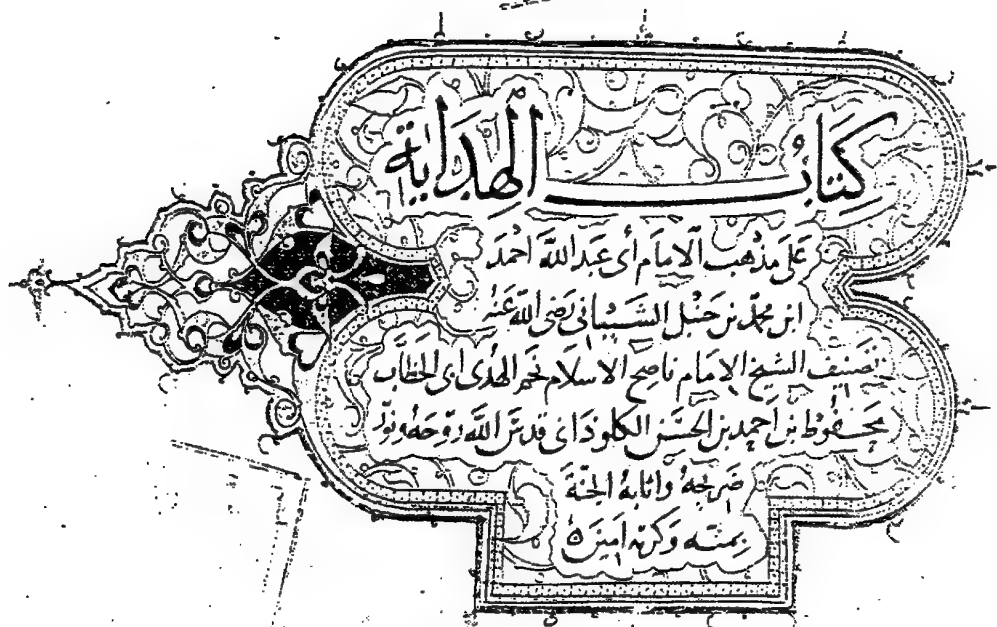 كِتَابُ الْهِدَايَة
عَلَى مَذْهَب الْإِمَام أبى عَبْد اللَّه أَحْمَد
ابن محمّد بن حَنْبَل الشَّيْبَانى رَضى اللَّه عَنْهُ
تَصْنيف الشيخ الامام ناصح الاسلام نجم الهدى ابى الخطّاب
محفوظ بن أحمد بن الحسَن الكلوذانى قدّسَ اللَّه روحَهُ ونوّر
ضريحَهُ واثابهُ الجنّةَ
بِمنّه وَكرمه امين